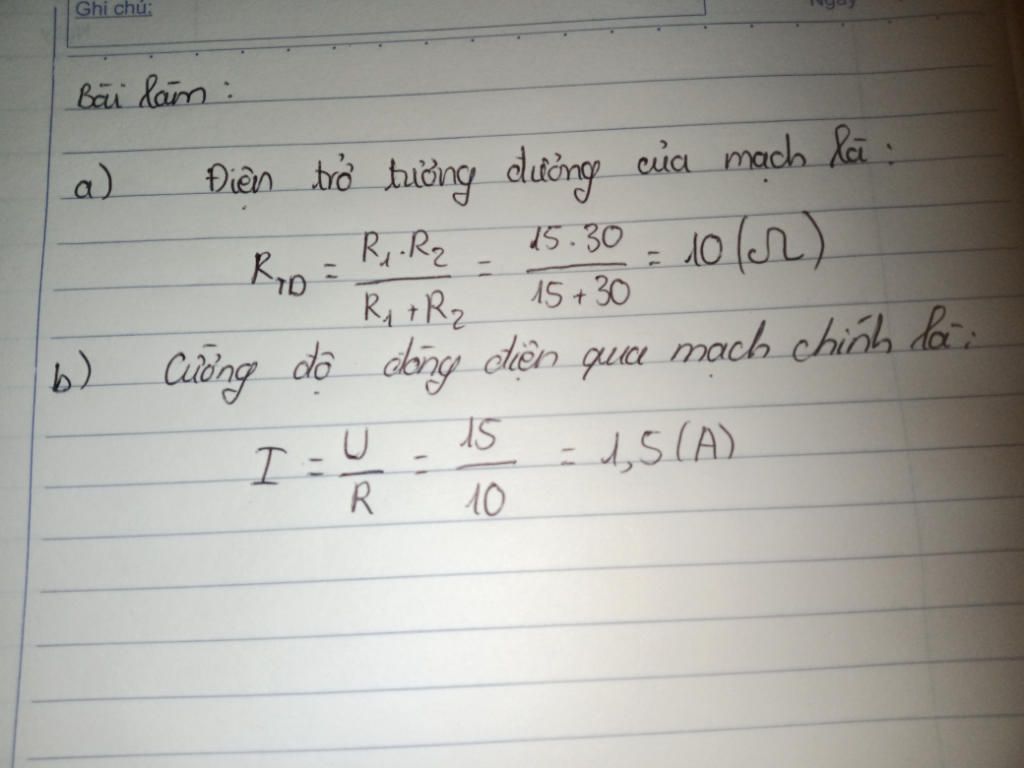 Ghi chú:
Ngày
Bài làm:
a) Điện trở tương đương của mạch là:
R_TD = R₁.R₂ / R₁+R₂ = 15.30 / 15+30 = 10(Ω)
b) Cường độ dòng điện qua mạch chính là:
I = U / R = 15 / 10 = 1,5(A)